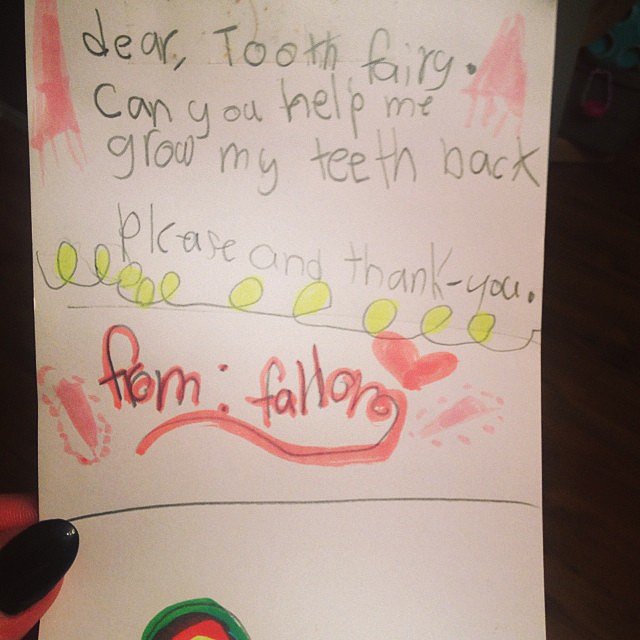 dear, Tooth fairy.
Can you help me
grow my teeth back
please and thank-you.
from: fallon